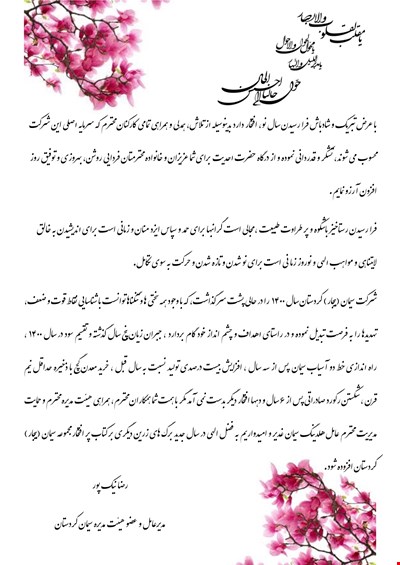 یا مقلب القلوب و الابصار
یا مدبر اللیل و النهار
یا محول الحول و الاحوال
حول حالنا الی احسن الحال
با عرض تبریک و شادباش فرا رسیدن سال نو، افتخار دارد بدینوسیله از تلاش، همدلی و همراهی تمامی کارکنان محترم که سرمایه اصلی این شرکت
محسوب می شوند، تشکر و قدردانی نموده و از درگاه حضرت احدیت برای شما عزیزان و خانواده محترمتان فردایی روشن، بهروزی و توفیق روز
افزون آرزو نمایم.
فرا رسیدن رستاخیز باشکوه و پر طراوت طبیعت ، مجالی است گرانبها برای حمد و سپاس ایزد منان و زمانی است برای اندیشیدن به خالق
لایتناهی و مواهب الهی و نوروز زمانی است برای نو شدن و تازه شدن و حرکت به سوی تکامل.
شرکت سیمان (بیجار) کردستان سال ۱۴۰۰ را در حالی پشت سر گذاشت، که با وجود همه سختی ها و تنگناها توانست با شناسایی نقاط قوت و ضعف،
تهدیدها را به فرصت تبدیل نموده و در راستای اهداف و چشم انداز خود گام بردارد ، جبران زیان پنج سال گذشته و تقسیم سود در سال ۱۴۰۰ ،
راه اندازی خط دو آسیاب سیمان پس از سه سال ، افزایش بیست درصدی تولید نسبت به سال قبل ، خرید معدن گچ با ذخیره حداقل نیم
قرن ، شکستن رکورد صادراتی پس از ۶ سال و دهها افتخار دیگر بدست نمی آمد مگر با همت شما همکاران محترم، همراهی هیئت مدیره محترم و حمایت
مدیریت محترم عامل هلدینگ سیمان غدیر و امیدواریم به فضل الهی در سال جدید برگ های زرین دیگری بر کتاب پر افتخار مجموعه سیمان (بیجار)
کردستان افزوده شود.
رضا نیک پور
مدیرعامل و عضو هیئت مدیره سیمان کردستان